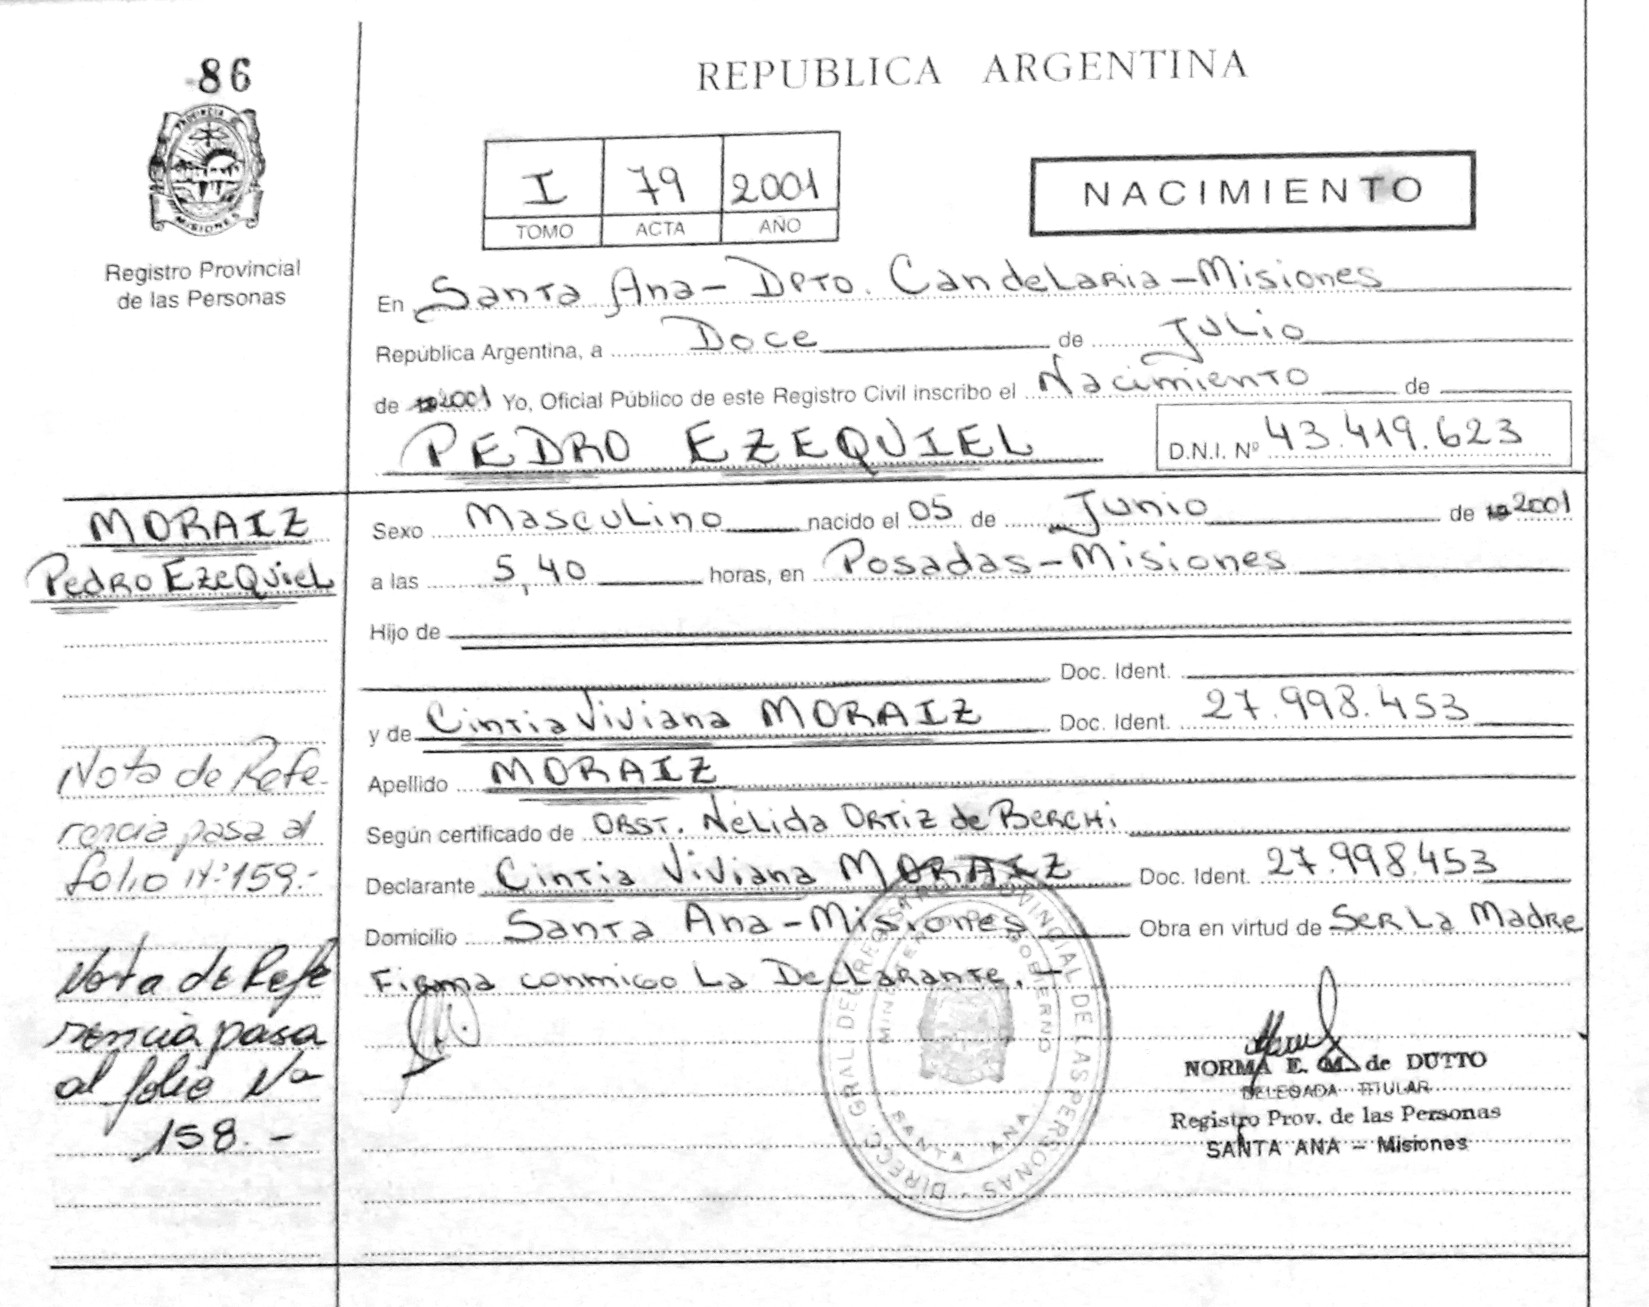 86
PROVINCIA DE
MISIONES
Registro Provincial
de las Personas
REPUBLICA ARGENTINA
I 79 2001
TOMO ACTA AÑO
NACIMIENTO
En Santa Ana - Dpto. Candelaria - Misiones
República Argentina, a Doce de Julio
de 2001 Yo, Oficial Público de este Registro Civil inscribo el Nacimiento de
PEDRO EZEQUIEL D.N.I. Nº 43.419.623
MORAIZ
Pedro Ezequiel
Sexo Masculino nacido el 05 de Junio de 2001
a las 5,40 horas, en Posadas - Misiones
Hijo de
Doc. Ident.
y de Cintia Viviana MORAIZ Doc. Ident. 27.998.453
Apellido MORAIZ
Según certificado de OBST. Nélida Ortiz de Berchi
Declarante Cintia Viviana MORAIZ Doc. Ident. 27.998.453
Domicilio Santa Ana - Misiones Obra en virtud de Ser La Madre
Firma conmigo La Declarante. -
Nota de Refe-
rencia pasa al
folio Nº 159.-
Nota de Refe
rencia pasa
al folio Nº
158. -
DIRECC. GRAL DE REGISTRO PROVINCIAL DE LAS PERSONAS -
MINISTERIO DE GOBIERNO
SANTA ANA
NORMA E. M. de DUTTO
DELEGADA TITULAR
Registro Prov. de las Personas
SANTA ANA - Misiones